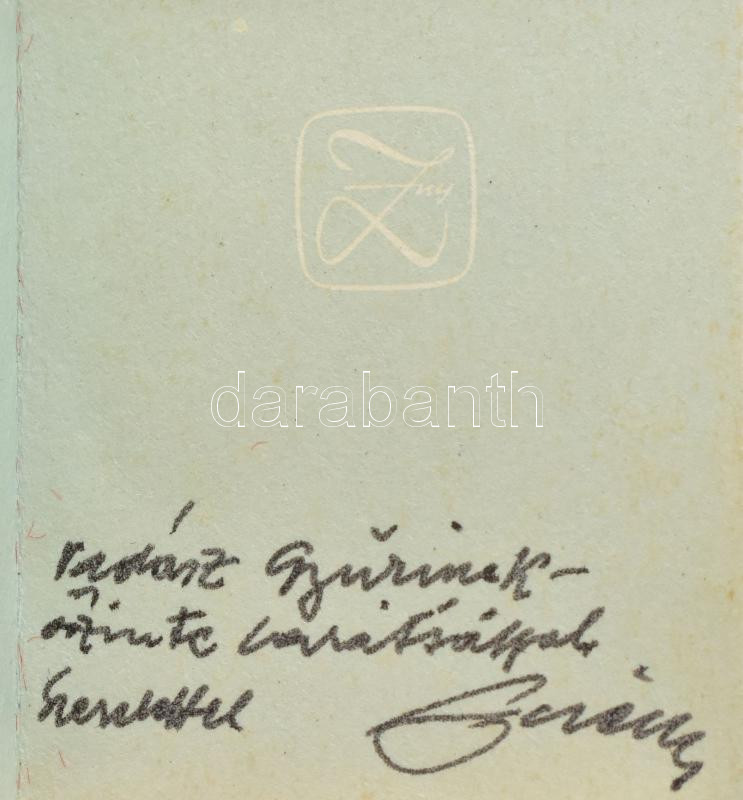 darabanth
Vadász Gyurinak –
őszinte barátsággal
szeretettel